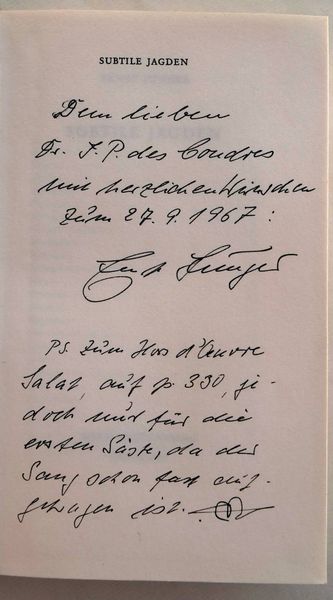 SUBTILE JAGDEN
Dem lieben
Dr. J. P. des Coudres
mit herzlichen Wünschen
zum 27. 9. 1967:
Ernst Jünger
PS. Zum Hors d'Oeuvre
Salat, auf p. 330, je-
doch nur für die
ersten Gäste, da der
Gang schon fast auf-
getragen ist.